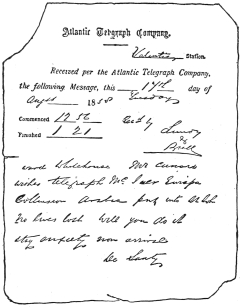 Atlantic Telegraph Company.
Valentia Station.
Received per the Atlantic Telegraph Company,
the following Message, this 17th day of
August 1858 Tuesday
Commenced 12 56
Finished 1 21
Whitehouse Mr
wishes telegraph Mc Iver Europa
Collision Arabia put into
No lives lost Will you do it
stay anxiety non arrival
De Sauty